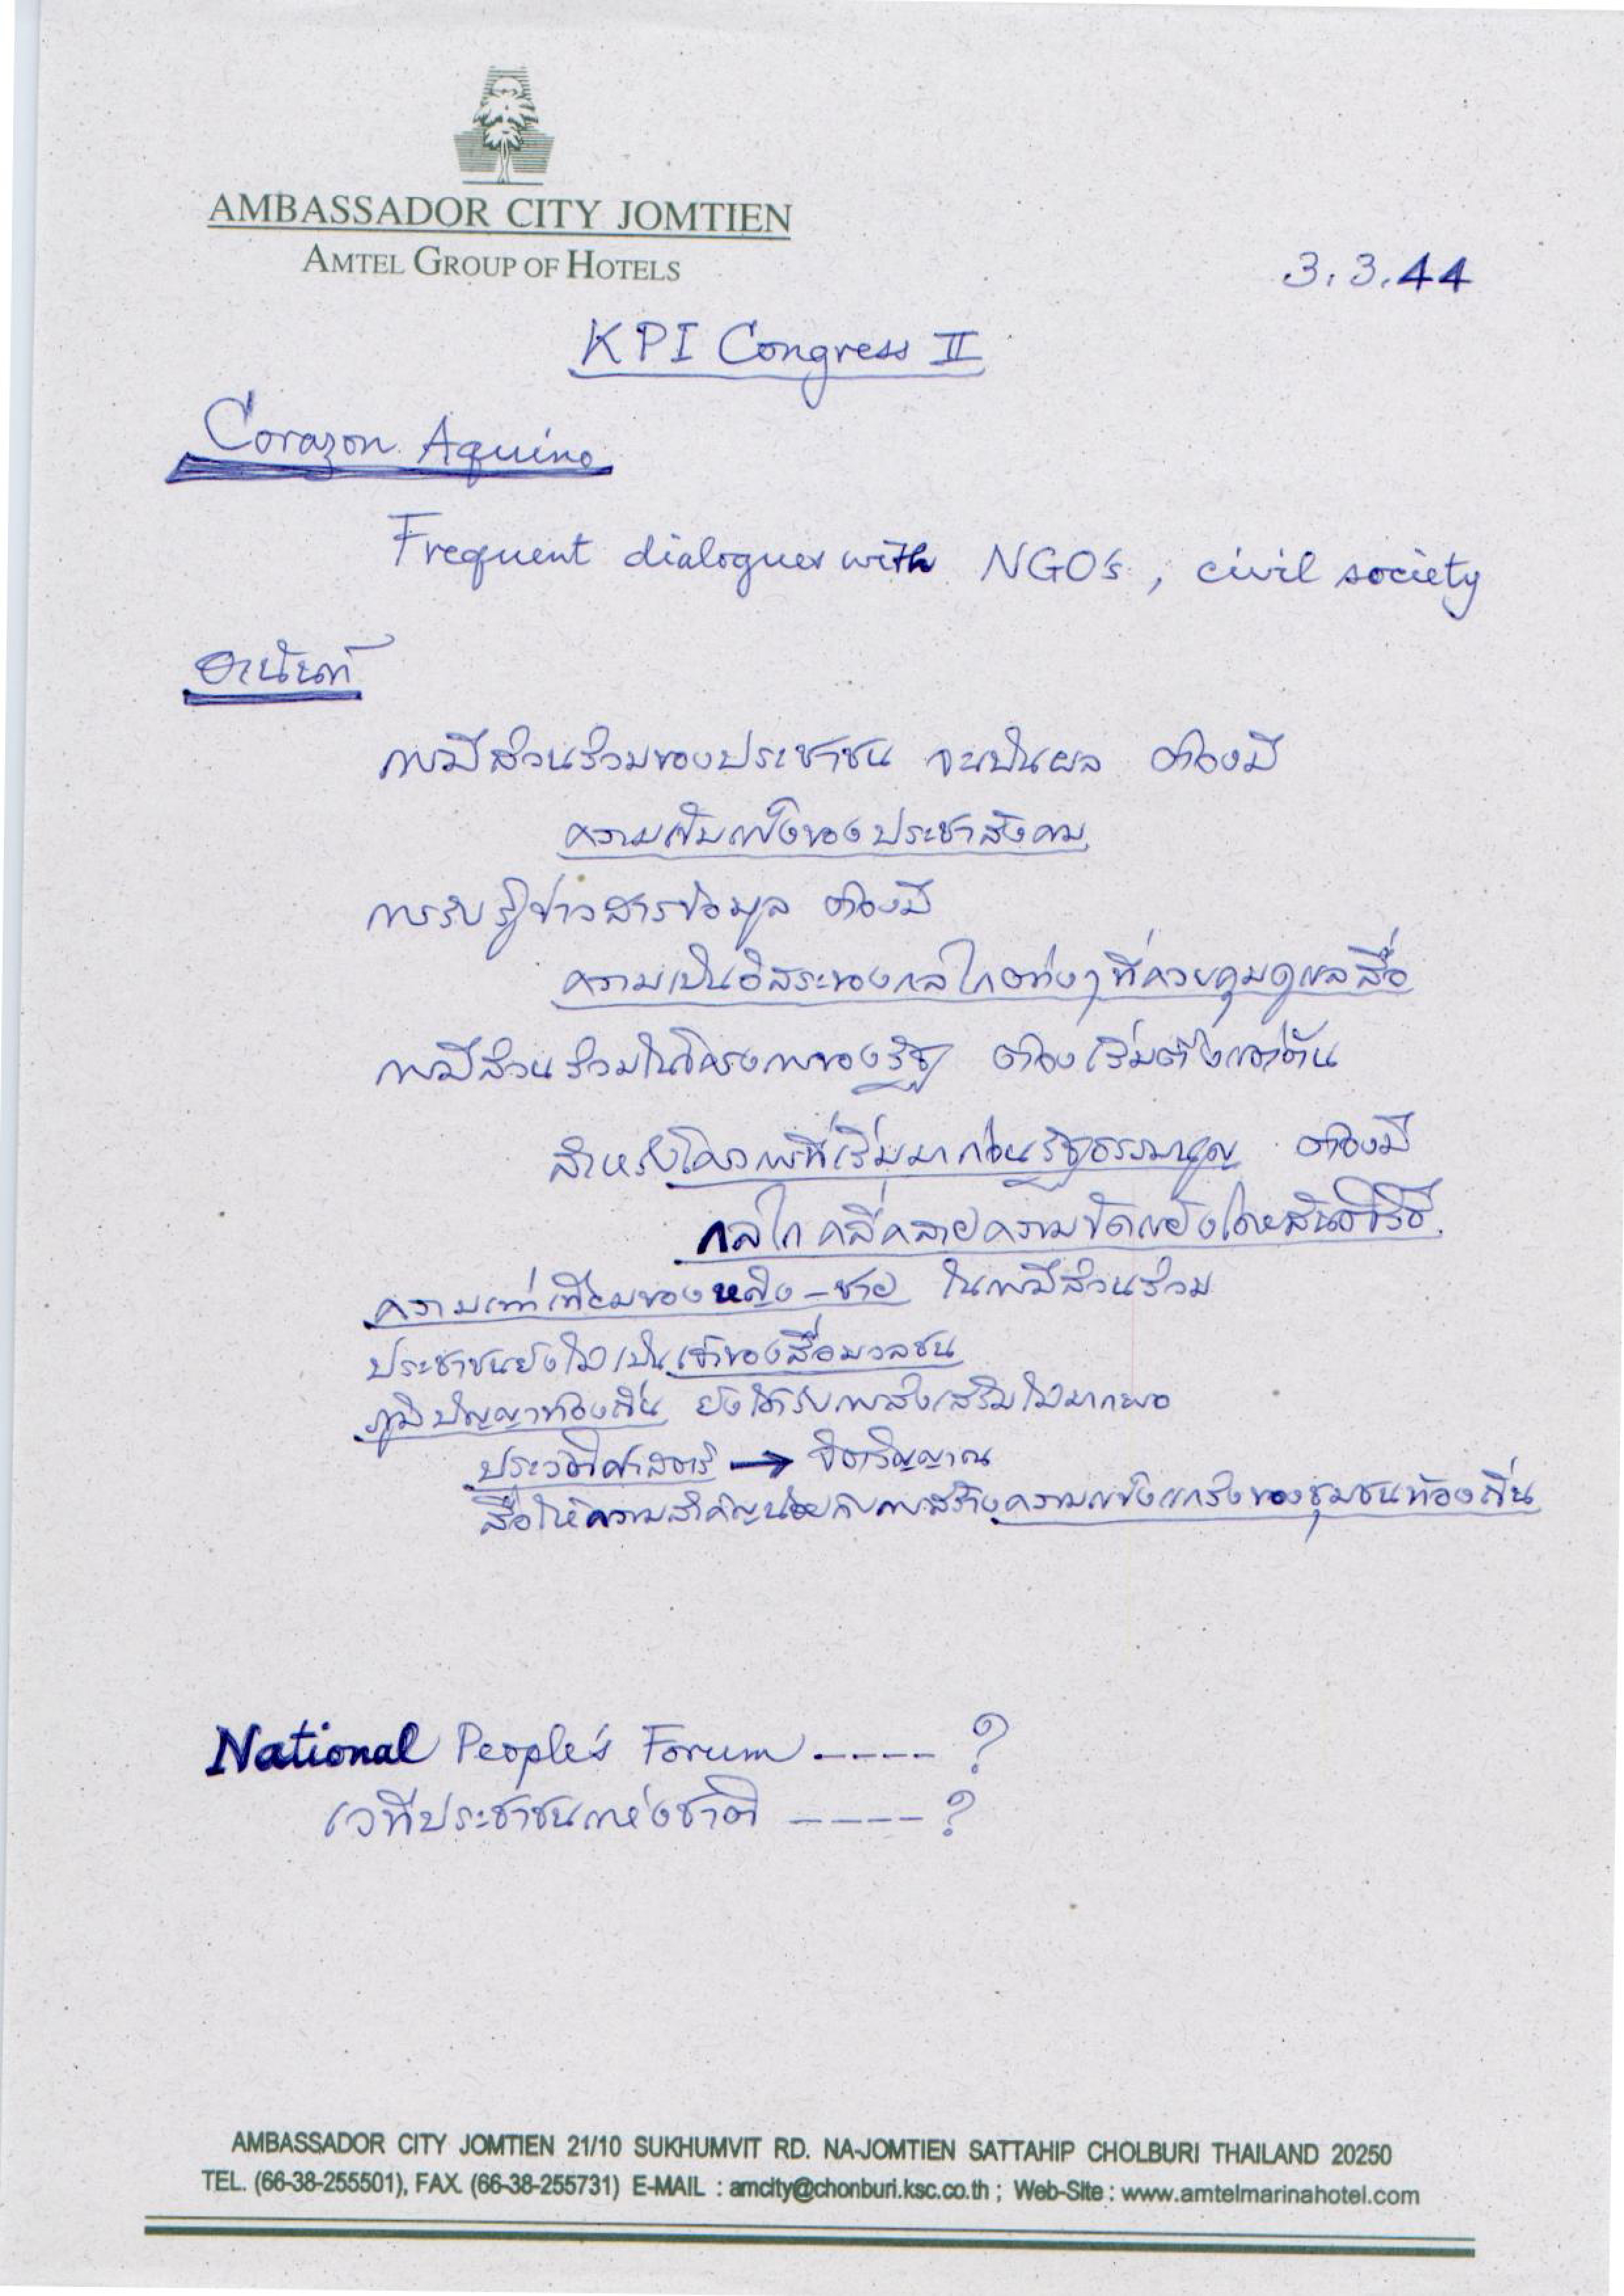 AMBASSADOR CITY JOMTIEN
AMTEL GROUP OF HOTELS
3.3.44
KPI Congress II
Corazon Aquino
Frequent dialogues with NGO's, civil society
อานันท์
การมีส่วนร่วมของประชาชน จะเป็นผล ต้องมี
ความเข้มแข็งของประชาสังคม
การรับรู้ข่าวสารข้อมูล ต้องมี
ความเป็นอิสระของกลไกต่างๆ ที่ควบคุมดูแลสื่อ
การมีส่วนร่วมในโครงการของรัฐ ต้องเริ่มตั้งแต่ต้น
สำหรับโครงการที่เริ่มมาก่อนรัฐธรรมนูญ ต้องมี
กลไกคลี่คลายความขัดแย้งโดยสันติวิธี.
ความเท่าเทียมของหญิง-ชาย ในการมีส่วนร่วม
ประชาชนยังไม่เป็นเจ้าของสื่อมวลชน
ภูมิปัญญาท้องถิ่น ยังได้รับการส่งเสริมไม่มากพอ
ประวัติศาสตร์ → จิตวิญญาณ
สื่อให้ความสำคัญน้อยกับการสร้างความแข็งแกร่งของชุมชนท้องถิ่น
National People's Forum ----- ?
เวทีประชาชนแห่งชาติ ----- ?
AMBASSADOR CITY JOMTIEN 21/10 SUKHUMVIT RD. NA-JOMTIEN SATTAHIP CHOLBURI THAILAND 20250
TEL. (66-38-255501), FAX. (66-38-255731) E-MAIL : amcity@chonburi.ksc.co.th ; Web-Site : www.amtelmarinahotel.com